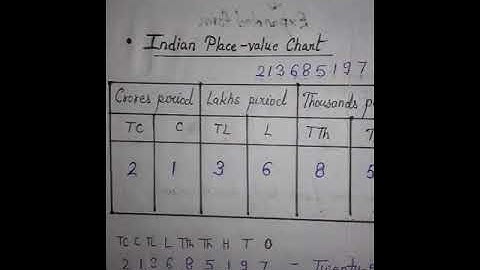 • Indian Place-value Chart
213685197
Crores period Lakhs period Thousands p
TC C TL L TTh T
2 1 3 6 8 5
TC C TL L TTh Th H T O
2 1 3 6 8 5 1 9 7 – Twenty